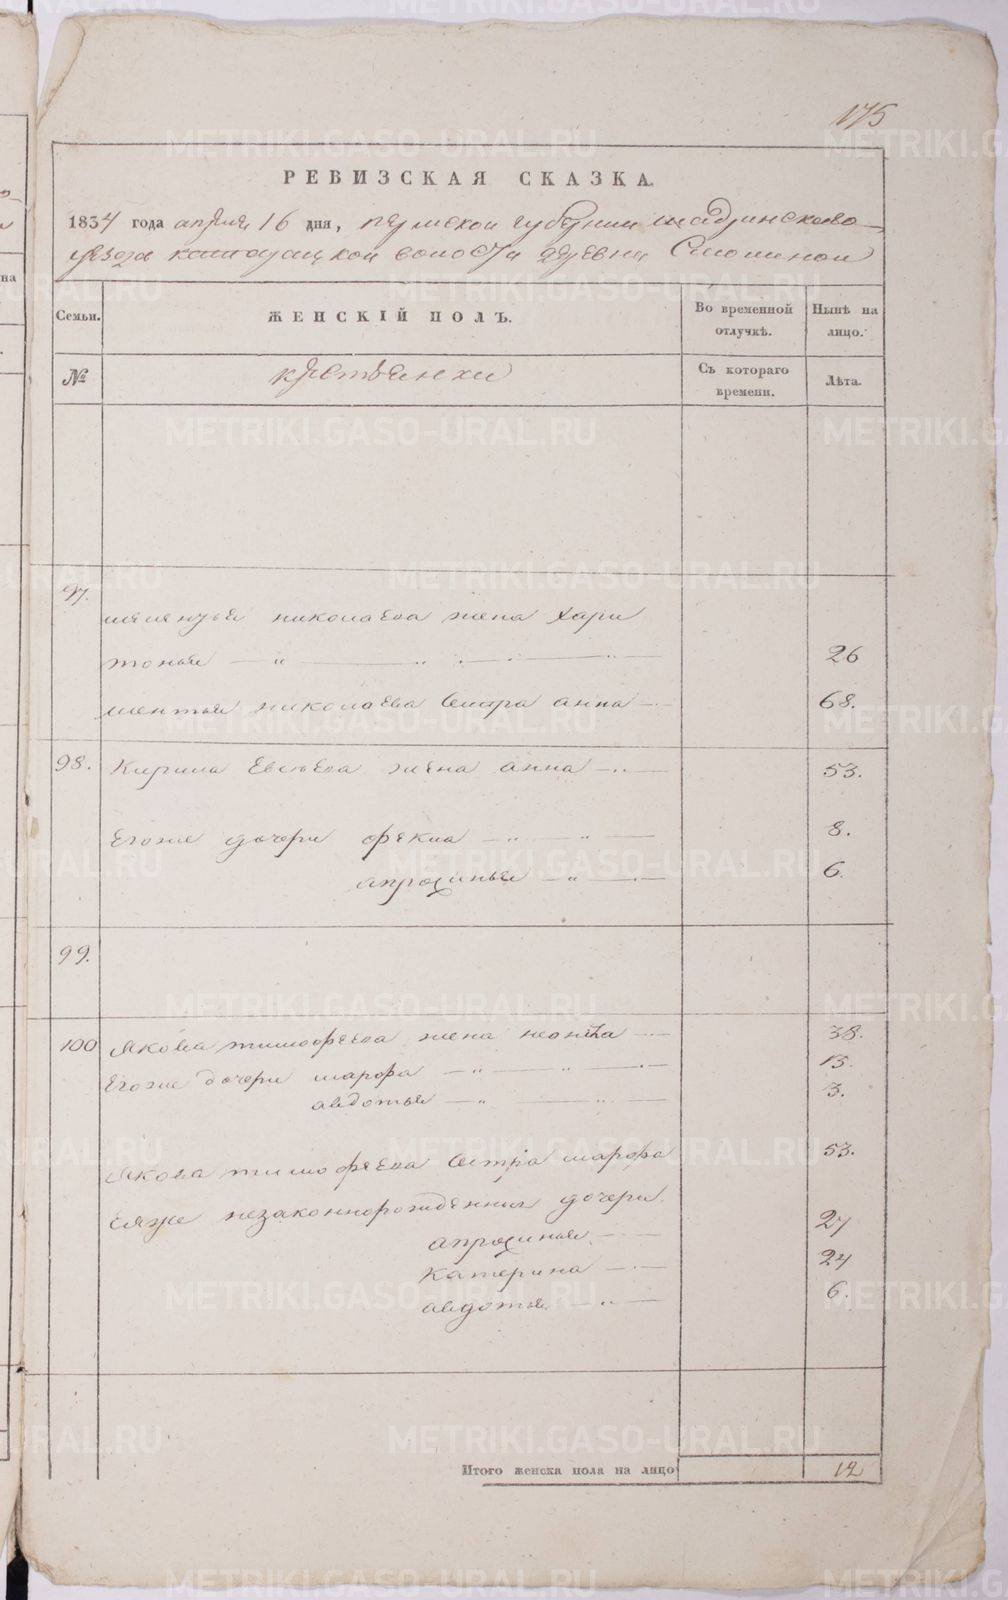 175
РЕВИЗСКАЯ СКАЗКА.
1834 года апреля 16 дня, пермской губернии шадринсково
уезда волости деревни
Семьи. ЖЕНСКІЙ ПОЛЪ. Во временной отлучкѣ. Нынѣ на лицо.
№ крестьянки Съ котораго времени. Лѣта.
97.
николаева жена хари
тонья 26
николаева сестра анна 68.
98. Кирила Евсѣева жена анна 53.
Егоже дочери фекла 8.
апросинья 6.
99.
100 якова тимофеева жена 38.
Егоже дочери марфа 13.
авдотья 3.
якова тимофеева сестра марфа 53.
Еяже незаконнорожденныя дочери
апросинья 27
катерина 24
авдотья 6.
Итого женска пола на лицо 12
METRIKI.GASO-URAL.RU